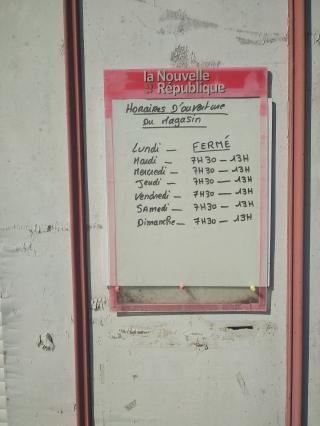 la Nouvelle
République
HORAIRES D'OUVERTURE
DU MAGASIN
LUNDI — FERMÉ
MARDI — 7H30 — 13H
MERCREDI — 7H30 — 13H
JEUDI — 7H30 — 13H
VENDREDI — 7H30 — 13H
SAMEDI — 7H30 — 13H
DIMANCHE — 7H30 — 13H